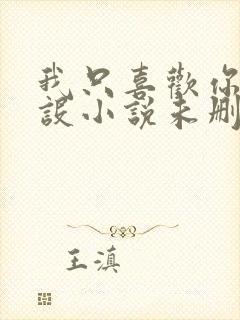 我只喜歡你
設小說未刪
王滇